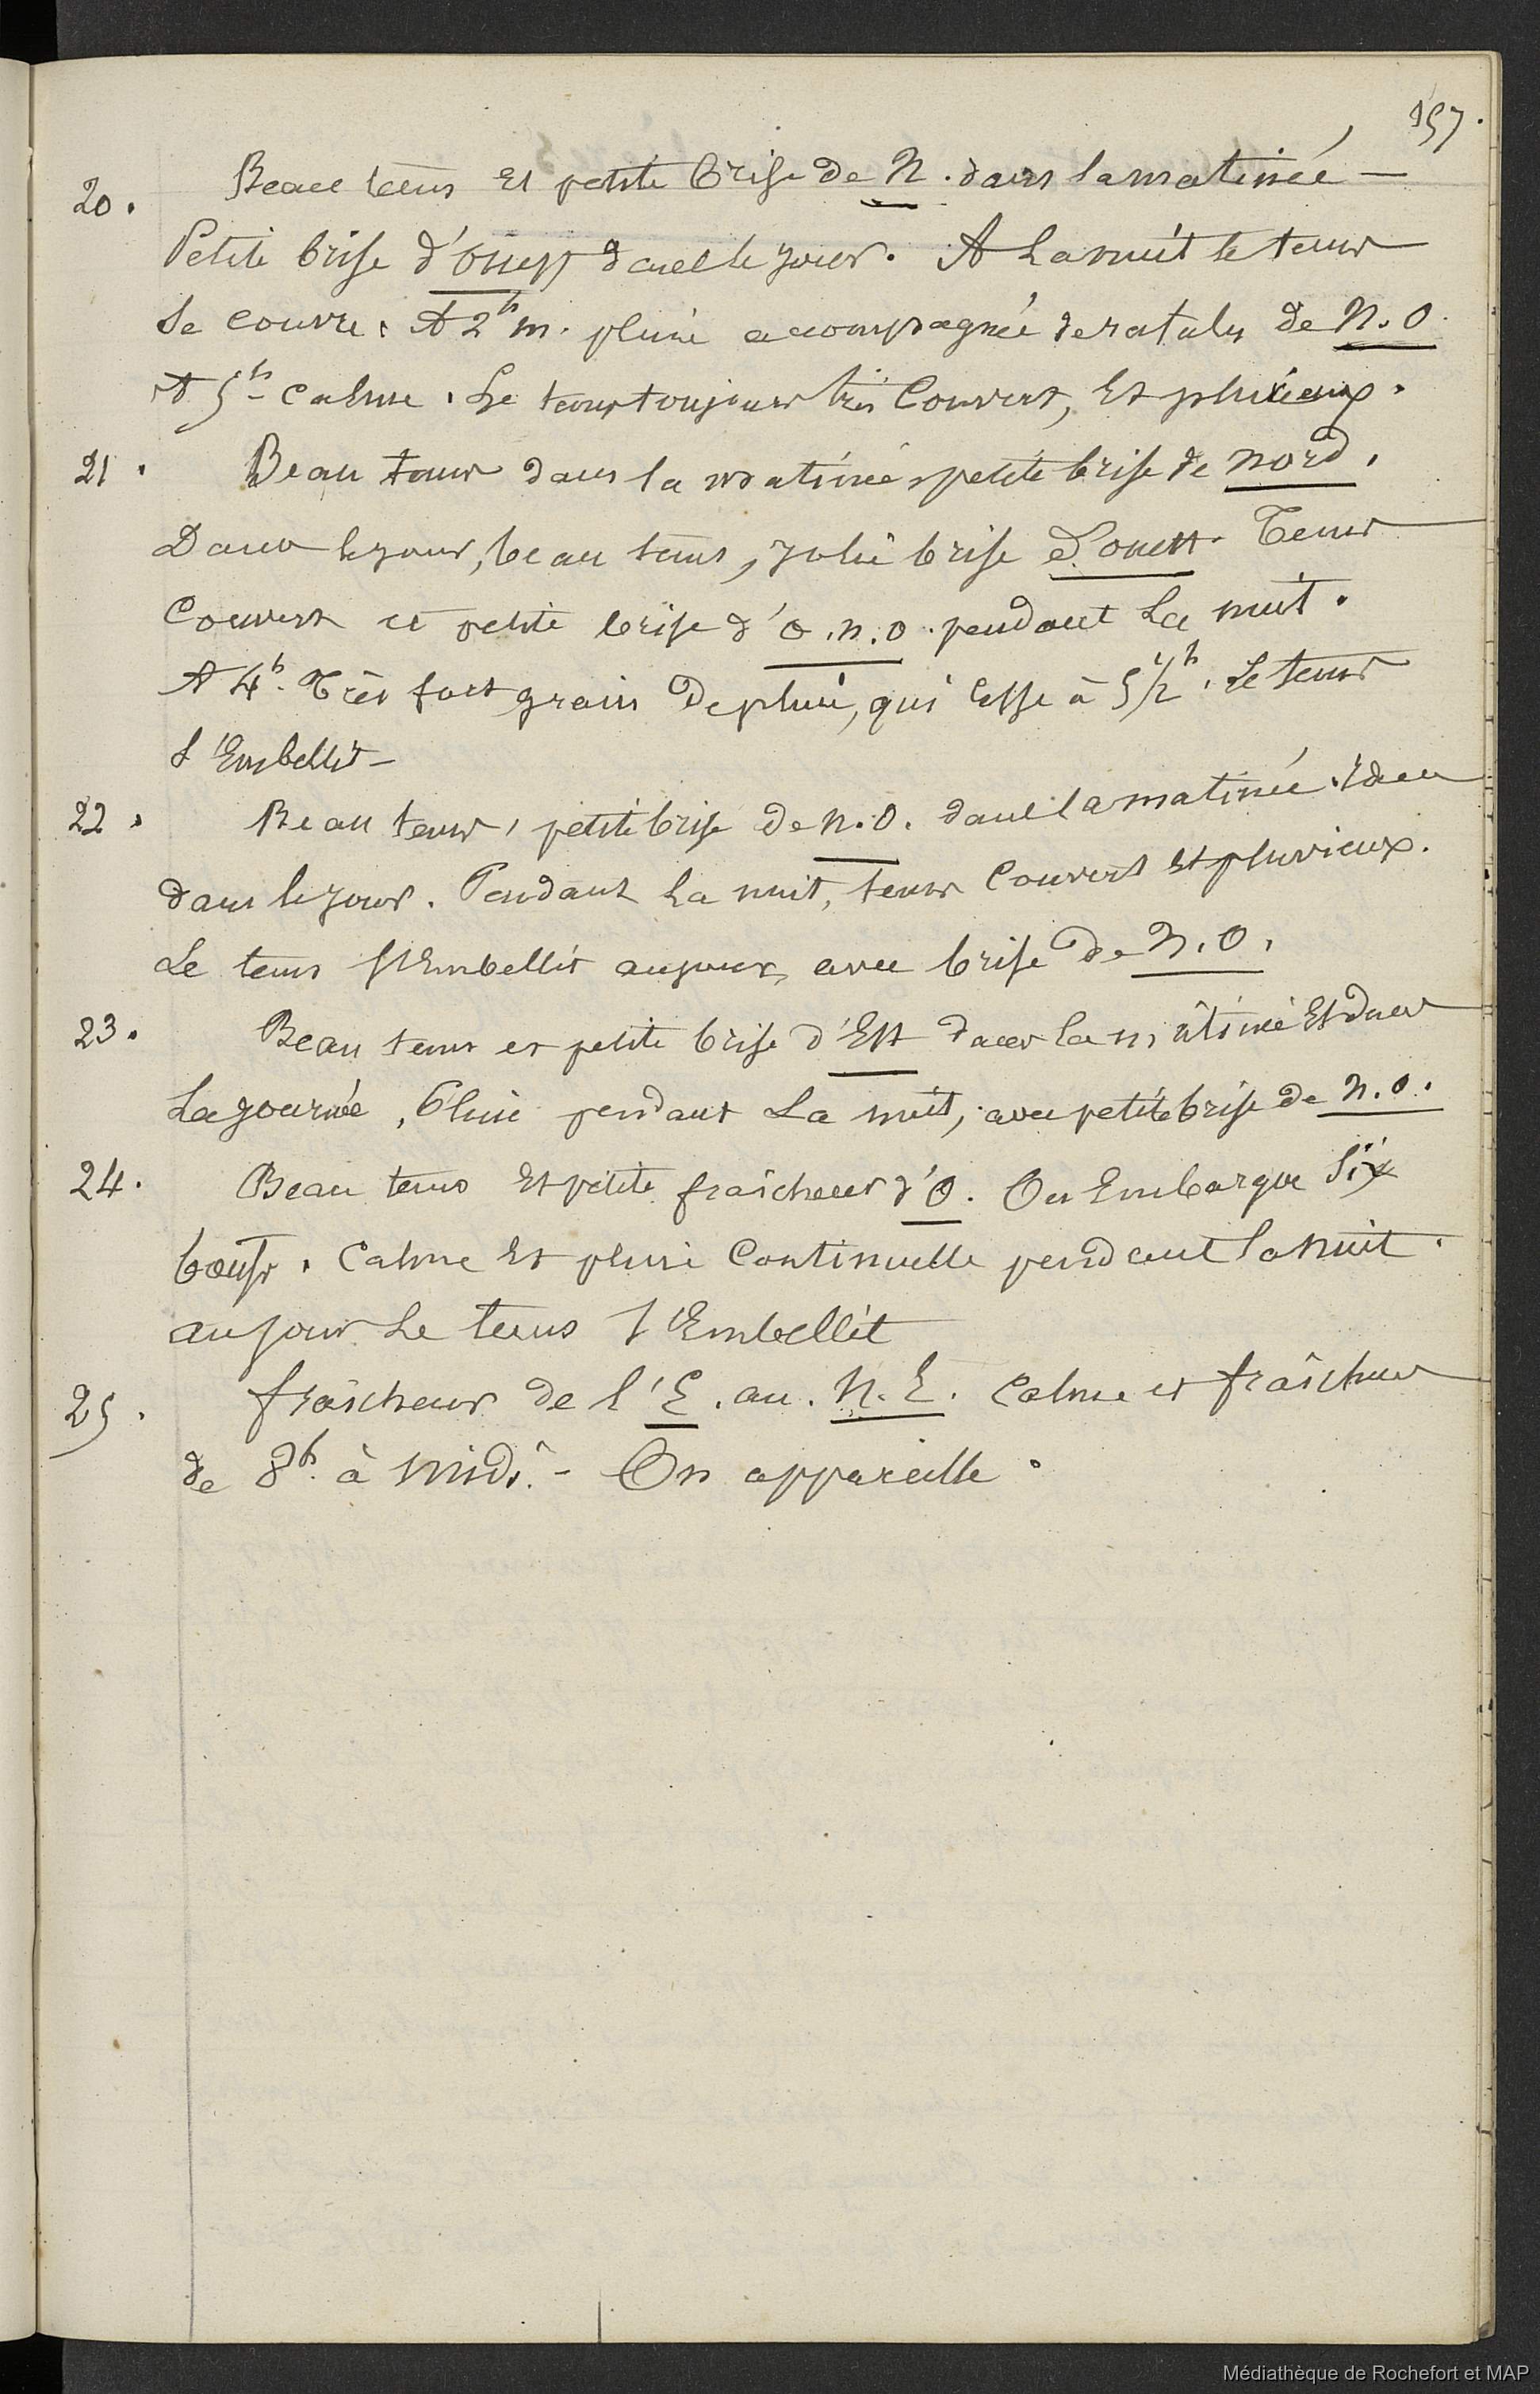 157.
20. Beau tems Et petite brise de N. dans la matinée —
Petite brise d'ouest dans le jour. A La nuit le tems
Se couvre. A 2h m. pluie accompagnée de rafales de N.O.
A 5h calme. Le tems toujours très Couvert, Et pluvieux.
21. Beau tems dans la matinée, petite brise de nord.
Dans le jour, beau tems, jolie brise d'ouest. Tems
Couvert et petite brise d'O.N.O. pendant La nuit.
A 4h. Très fort grain De pluie, qui Cesse à 5 1/2h. Le tems
S'Embellit —
22. Beau tems, petite brise de N.O. dans la matinée. Idem
dans le jour. Pendant La nuit, tems Couvert Et pluvieux.
Le tems S'Embellit au jour, avec brise de N.O.
23. Beau tems et petite brise d'Est dans la matinée Et dans
La journée. Pluie pendant La nuit, avec petite brise de N.O.
24. Beau tems Et petite fraîcheur d'O. On Embarque Six
bœufs. Calme Et pluie Continuelle pendant la nuit.
au jour Le tems S'Embellit
25. fraîcheur de l'E. au N.E. Calme et fraîcheur
de 8h. à midi. - On appareille.
Médiathèque de Rochefort et MAP